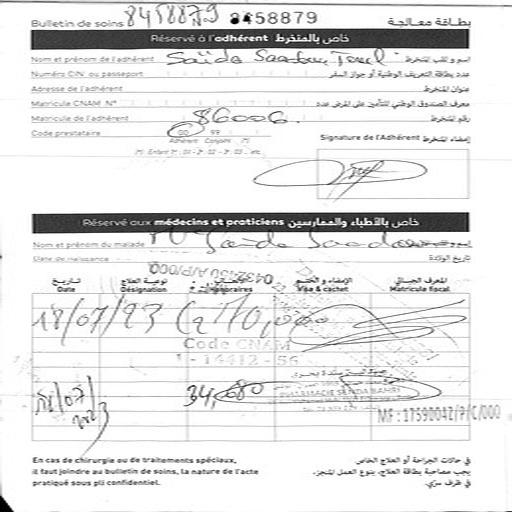 Bulletin de soins 8458879 8458879 بطاقة معالجة
Réservé à l'adhérent خاص بالمنخرط
Nom et prénom de l'adhérent Saïda إسم و لقب المنخرط
Numéro CIN ou passeport عدد بطاقة التعريف الوطنية أو جواز السفر
Adresse de l'adhérent عنوان المنخرط
Matricule CNAM N° معرف الصندوق الوطني للتأمين على المرض عدد
Matricule de l'adhérent 86006 رقم المنخرط
Code prestataire 00 99
Adhérent Conjoint (*)
Signature de l'Adhérent إمضاء المنخرط
(*) Enfant 1er : 01 - 2e : 02 - 3e : 03 .. etc
Réservé aux médecins et praticiens خاص بالأطباء والممارسين
Nom et prénom du malade Saïda
Date de naissance تاريخ الولادة
تاريخ Date
نوعية العلاج Désignation
Honoraires
الإمضاء و الختم Visa & cachet
المعرف الجبائي Matricule fiscal
18/07/23 C2 70,000
Code CNAM
1 - 14412 - 56
18/07/2023 34,680
MF : 1759004Z/P/C/000
En cas de chirurgie ou de traitements spéciaux,
il faut joindre au bulletin de soins, la nature de l'acte
pratiqué sous pli confidentiel.
في حالات الجراحة أو العلاج الخاص
يجب مصاحبة بطاقة العلاج، بنوع العمل المنجز،
في ظرف سري.